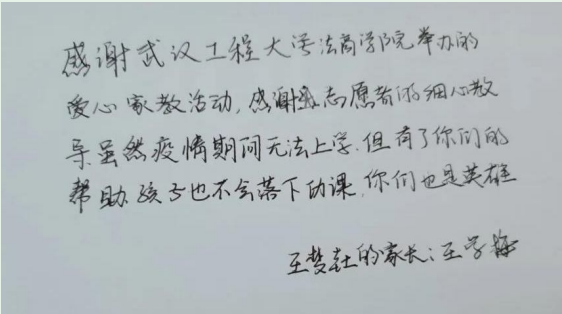 感谢武汉工程大学法商学院举办的
爱心家教活动,感谢志愿者的细心教
导虽然疫情期间无法上学.但有了你们的
帮助.孩子也不会落下功课.你们也是英雄
王梦 的家长:王学梅